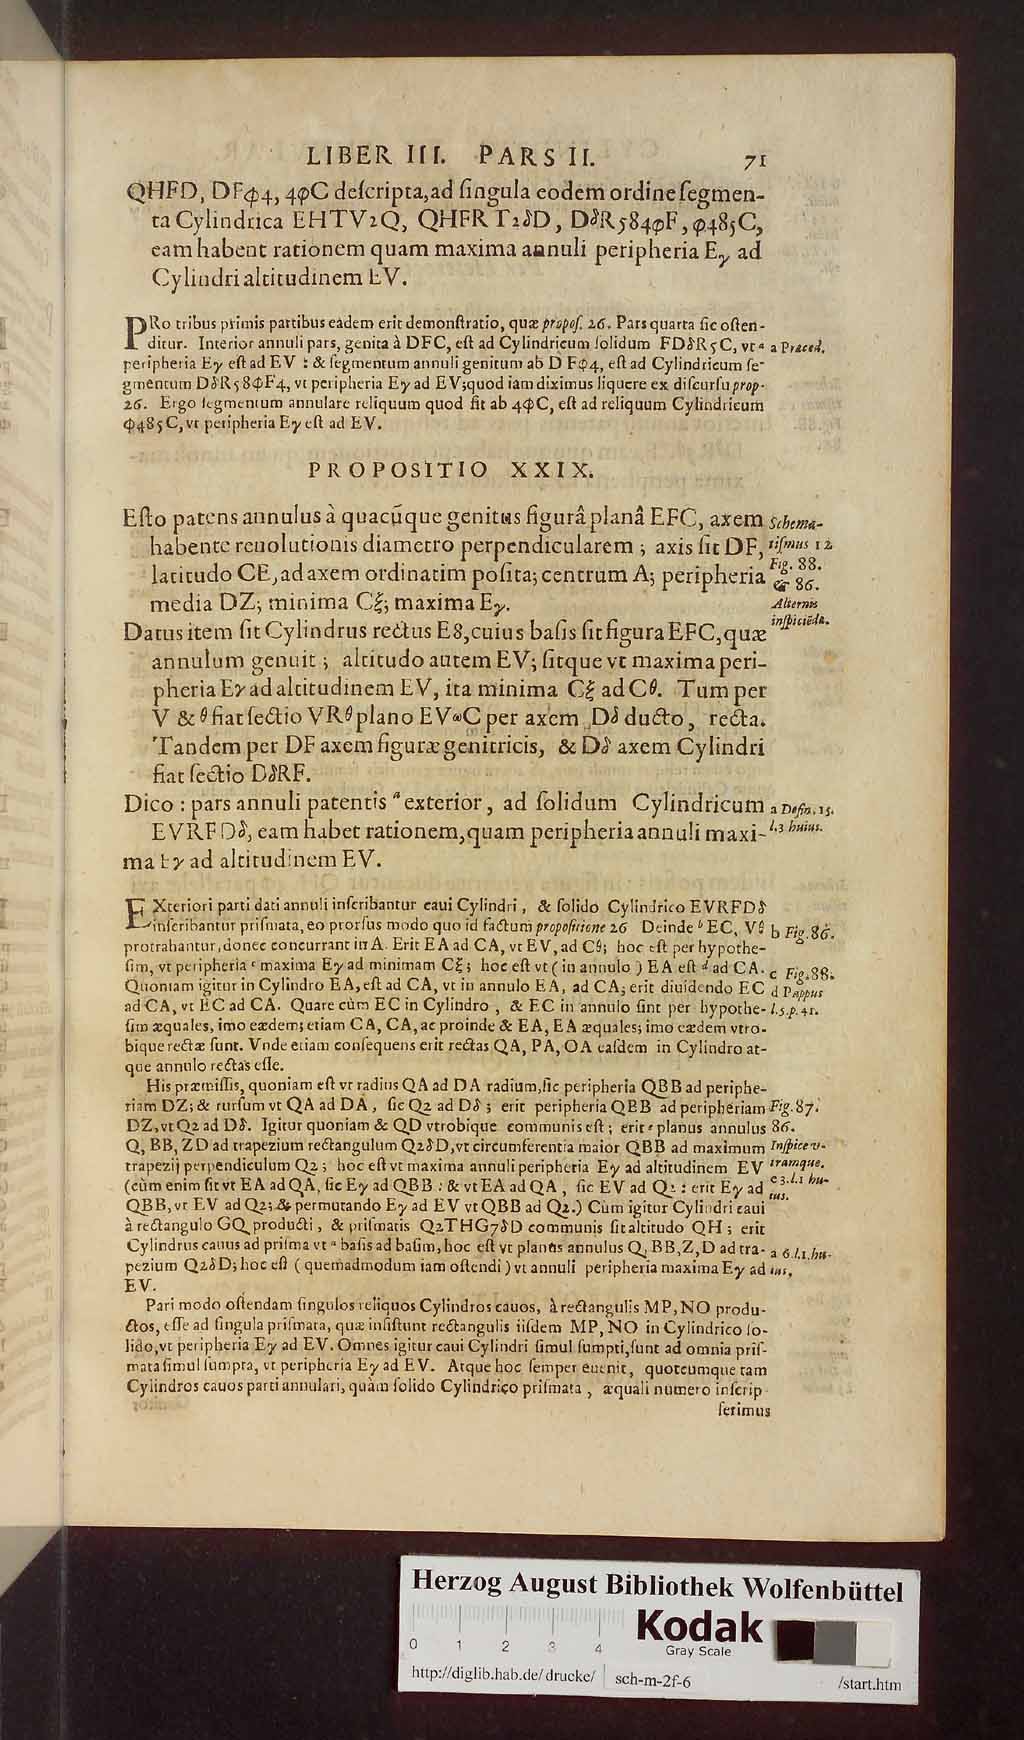 LIBER III. PARS II. 71
QHFD, DFφ4, 4φC deſcripta, ad ſingula eodem ordine ſegmen-
ta Cylindrica EHTV2Q, QHFRT2δD, DδR584φF, φ485C,
eam habent rationem quam maxima annuli peripheria Eγ ad
Cylindri altitudinem EV.
PRo tribus primis partibus eadem erit demonſtratio, quæ propoſ. 26. Pars quarta ſic oſten-
ditur. Interior annuli pars, genita à DFC, eſt ad Cylindricum ſolidum FDδR5C, vt a a Præced.
peripheria Eγ eſt ad EV : & ſegmentum annuli genitum ab DFφ4, eſt ad Cylindricum ſe-
gmentum DδR58φF4, vt peripheria Eγ ad EV; quod iam diximus liquere ex diſcurſu prop.
26. Ergo ſegmentum annulare reliquum quod fit ab 4φC, eſt ad reliquum Cylindricum
φ485C, vt peripheria Eγ eſt ad EV.
PROPOSITIO XXIX.
Eſto patens annulus à quacũque genitus figurâ planâ EFC, axem Schema-
habente reuolutionis diametro perpendicularem ; axis ſit DF, tiſmus 12
latitudo CE, ad axem ordinatim poſita; centrum A; peripheria Fig. 88. & 86.
media DZ; minima Cξ; maxima Eγ. Alternis
Datus item ſit Cylindrus rectus E8, cuius baſis ſit figura EFC, quæ inſpiciẽda.
annulum genuit ; altitudo autem EV; ſitque vt maxima peri-
pheria Eγ ad altitudinem EV, ita minima Cξ ad Cθ. Tum per
V & θ fiat ſectio VRθ plano EV∞C per axem Dδ ducto, recta.
Tandem per DF axem figuræ genitricis, & Dδ axem Cylindri
fiat ſectio DδRF.
Dico : pars annuli patentis a exterior, ad ſolidum Cylindricum a Defin. 15.
EVRFDδ, eam habet rationem, quam peripheria annuli maxi- l.3 huius.
ma Eγ ad altitudinem EV.
EXteriori parti dati annuli inſcribantur caui Cylindri, & ſolido Cylindrico EVRFDδ
inſcribantur priſmata, eo prorſus modo quo id factum propoſitione 26 Deinde b EC, Vθ b Fig. 86.
protrahantur, donec concurrant in A. Erit EA ad CA, vt EV, ad Cθ; hoc eſt per hypothe-
ſim, vt peripheria c maxima Eγ ad minimam Cξ; hoc eſt vt ( in annulo ) EA eſt d ad CA. c Fig. 88.
Quoniam igitur in Cylindro EA, eſt ad CA, vt in annulo EA, ad CA; erit diuidendo EC d Pappus
ad CA, vt EC ad CA. Quare cùm EC in Cylindro, & EC in annulo ſint per hypothe- l.5.p.41.
ſim æquales, imo eædem; etiam CA, CA, ac proinde & EA, EA æquales; imo eædem vtro-
bique rectæ ſunt. Vnde etiam conſequens erit rectas QA, PA, OA eaſdem in Cylindro at-
que annulo rectas eſſe.
His præmiſſis, quoniam eſt vt radius QA ad DA radium, ſic peripheria QBB ad periphe-
riam DZ; & rurſum vt QA ad DA, ſic Q2 ad Dδ ; erit peripheria QBB ad peripheriam Fig. 87.
DZ, vt Q2 ad Dδ. Igitur quoniam & QD vtrobique communis eſt ; erit e planus annulus 86.
Q, BB, ZD ad trapezium rectangulum Q2δD, vt circumferentia maior QBB ad maximum Inſpice v-
trapezij perpendiculum Q2 ; hoc eſt vt maxima annuli peripheria Eγ ad altitudinem EV tramque.
(cùm enim ſit vt EA ad QA, ſic Eγ ad QBB : & vt EA ad QA, ſic EV ad Q2 : erit Eγ ad e 3.l.1 hu-
QBB, vt EV ad Q2; & permutando Eγ ad EV vt QBB ad Q2.) Cùm igitur Cylindri caui ius.
à rectangulo GQ producti, & priſmatis Q2THG7δD communis ſit altitudo QH ; erit
Cylindrus cauus ad priſma vt a baſis ad baſim, hoc eſt vt planus annulus Q, BB, Z, D ad tra- a 6.l.1.hu-
pezium Q2δD; hoc eſt ( quemadmodum iam oſtendi ) vt annuli peripheria maxima Eγ ad ius,
EV.
Pari modo oſtendam ſingulos reliquos Cylindros cauos, à rectangulis MP, NO produ-
ctos, eſſe ad ſingula priſmata, quæ inſiſtunt rectangulis iiſdem MP, NO in Cylindrico ſo-
lido, vt peripheria Eγ ad EV. Omnes igitur caui Cylindri ſimul ſumpti, ſunt ad omnia priſ-
mata ſimul ſumpta, vt peripheria Eγ ad EV. Atque hoc ſemper euenit, quotcumque tam
Cylindros cauos parti annulari, quàm ſolido Cylindrico priſmata, æquali numero inſcrip-
ſerimus
Herzog August Bibliothek Wolfenbüttel
Kodak
Gray Scale
0 1 2 3 4
http://diglib.hab.de/drucke/ sch-m-2f-6 /start.htm